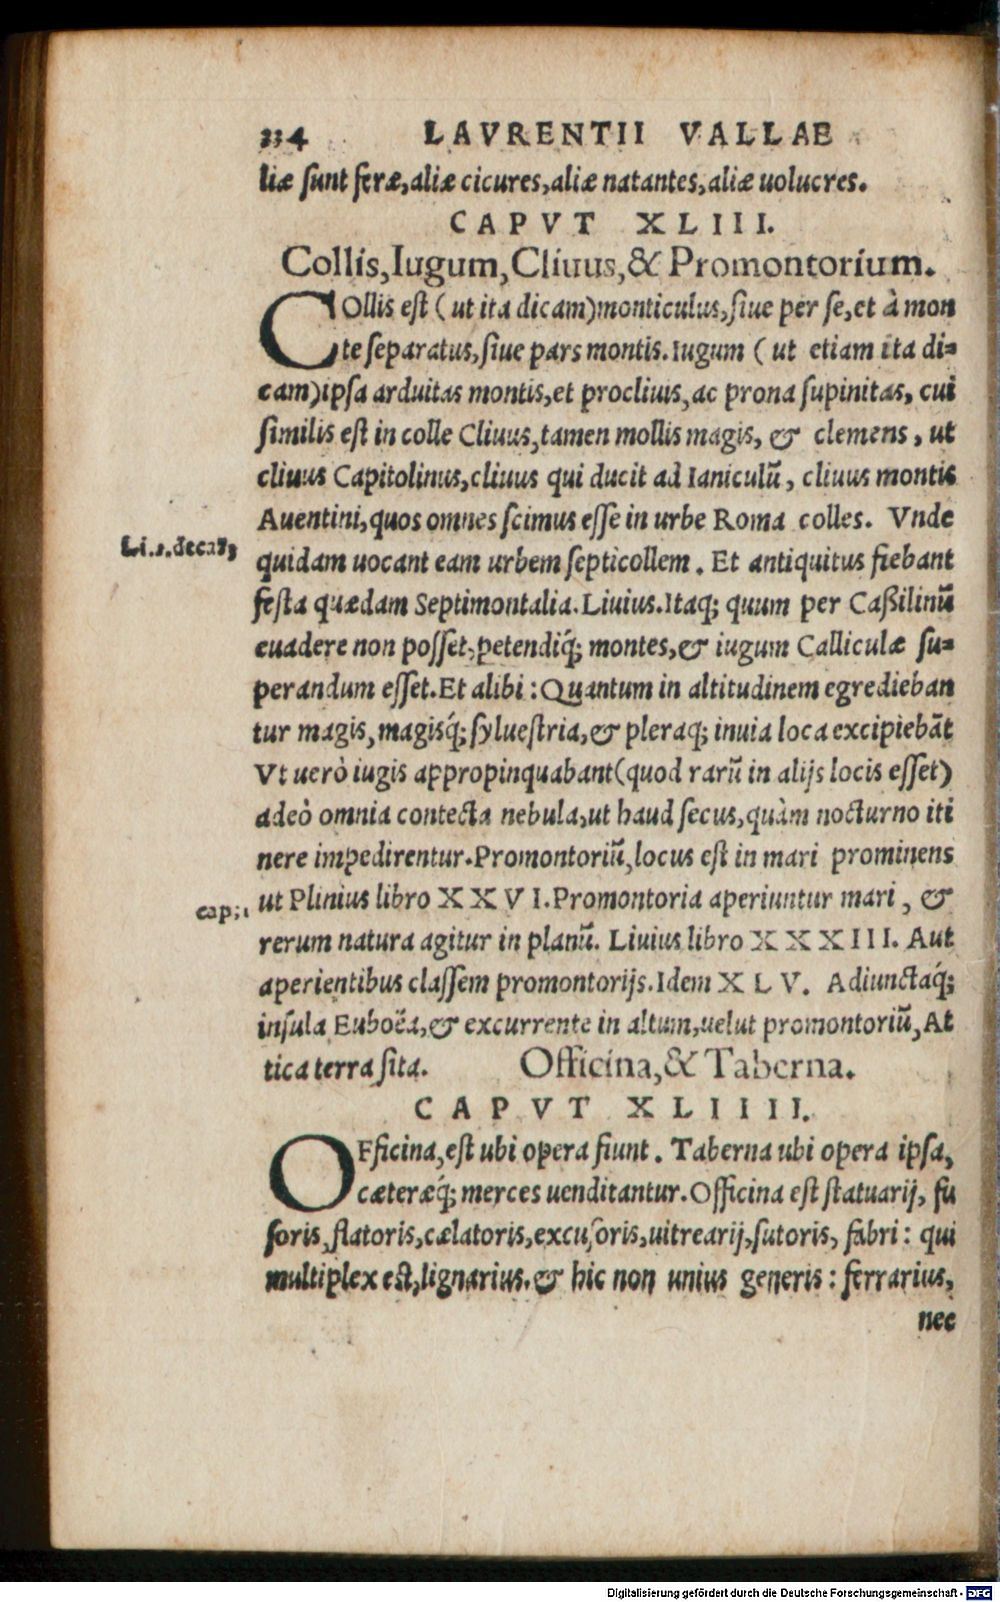 334 LAVRENTII VALLAE
liæ sunt feræ, aliæ cicures, aliæ natantes, aliæ uolucres.
CAPVT XLIII.
Collis, Iugum, Cliuus, & Promontorium.
COllis est ( ut ita dicam) monticulus, siue per se, et à mon
te separatus, siue pars montis. Iugum ( ut etiam ita di=
cam) ipsa arduitas montis, et procliuis, ac prona supinitas, cui
similis est in colle Cliuus, tamen mollis magis, & clemens, ut
cliuus Capitolinus, cliuus qui ducit ad Ianiculũ, cliuus montis
Auentini, quos omnes scimus esse in urbe Roma colles. Vnde
quidam uocant eam urbem septicollem. Et antiquitus fiebant
festa quædam Septimontalia. Liuius. Itaq; quum per Caßilinũ
euadere non posset, petendiq́; montes, & iugum Calliculæ su=
perandum esset. Et alibi: Quantum in altitudinem egredieban
tur magis, magisq́; syluestria, & pleraq; inuia loca excipiebãt
Vt uerò iugis appropinquabant (quod rarũ in alijs locis esset)
adeò omnia contecta nebula, ut haud secus, quàm nocturno iti
nere impedirentur. Promontoriũ, locus est in mari prominens
cap;
ut Plinius libro XXVI. Promontoria aperiuntur mari, &
rerum natura agitur in planũ. Liuius libro XXXIII. Aut
aperientibus classem promontorijs. Idem XLV. Adiunctaq́;
insula Euboëa, & excurrente in altum, uelut promontoriũ, At
tica terra sita. Officina, & Taberna.
CAPVT XLIIII.
OFficina, est ubi opera fiunt. Taberna ubi opera ipsa,
cæteræq́; merces uenditantur. Officina est statuarij, fu
soris, flatoris, cælatoris, excusoris, uitrearij, sutoris, fabri: qui
multiplex est, lignarius. & hic non unius generis: ferrarius,
nec
Digitalisierung gefördert durch die Deutsche Forschungsgemeinschaft - DFG